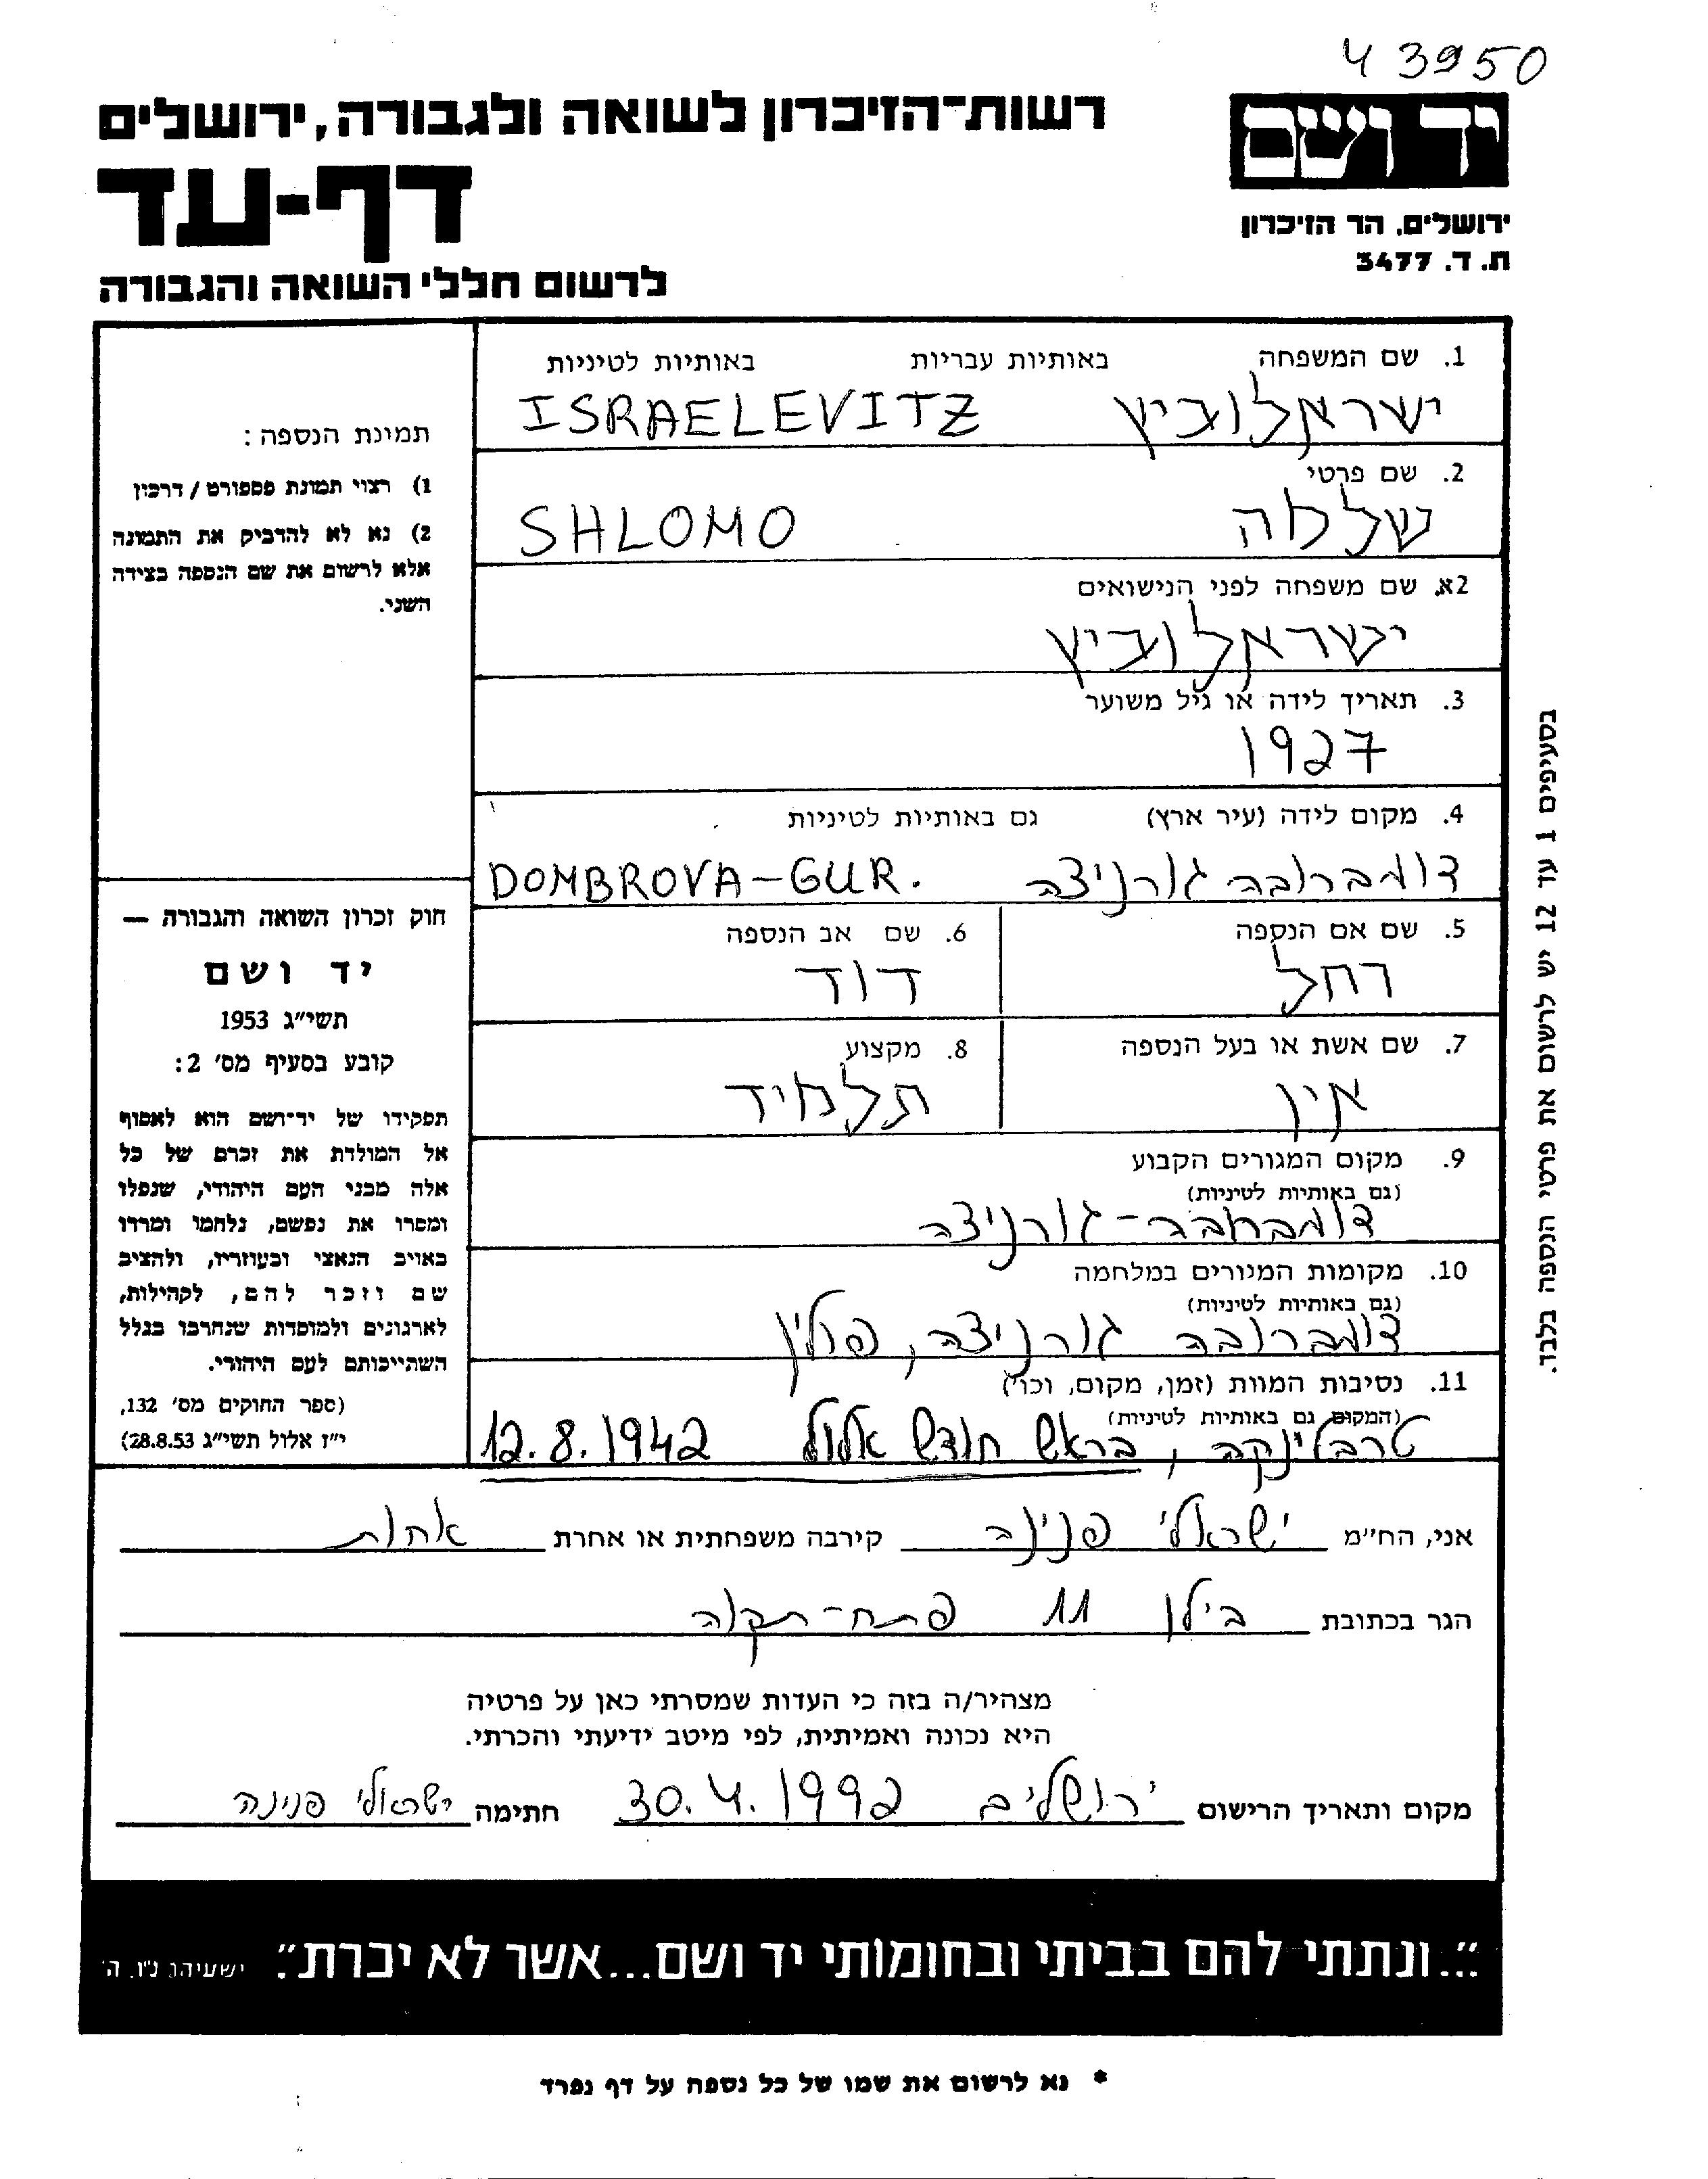 43950
יד ושם
רשות-הזיכרון לשואה ולגבורה, ירושלים
דף-עד
ירושלים, הר הזיכרון
ת. ד. 3477
לרשום חללי השואה והגבורה
1. שם המשפחה באותיות עבריות באותיות לטיניות
ישראלוביץ ISRAELEVITZ
2. שם פרטי
שלמה SHLOMO
2א. שם משפחה לפני הנישואים
ישראלוביץ
3. תאריך לידה או גיל משוער
1927
4. מקום לידה (עיר ארץ) גם באותיות לטיניות
דומברובה גורניצה DOMBROVA-GUR.
5. שם אם הנספה 6. שם אב הנספה
רחל דוד
7. שם אשת או בעל הנספה 8. מקצוע
אין תלמיד
9. מקום המגורים הקבוע
(גם באותיות לטיניות)
דומברובה-גורניצה
10. מקומות המגורים במלחמה
(גם באותיות לטיניות)
דומברובה גורניצה, פולין
11. נסיבות המוות (זמן, מקום, וכו')
(המקום גם באותיות לטיניות)
טרבלינקה, בראש חודש אלול 12.8.1942
תמונת הנספה:
1) רצוי תמונת פספורט / דרכון
2) נא לא להדביק את התמונה
אלא לרשום את שם הנספה בצידה
השני.
חוק זכרון השואה והגבורה —
יד ושם
תשי"ג 1953
קובע בסעיף מס' 2:
תפקידו של יד-ושם הוא לאסוף
אל המולדת את זכרם של כל
אלה מבני העם היהודי, שנפלו
ומסרו את נפשם, נלחמו ומרדו
באויב הנאצי ובעוזריו, ולהציב
שם וזכר להם, לקהילות,
לארגונים ולמוסדות שנחרבו בגלל
השתייכותם לעם היהודי.
(ספר החוקים מס' 132,
י"ז אלול תשי"ג 28.8.53)
בסעיפים 1 עד 12 יש לרשום את פרטי הנספה בלבד.
אני, הח"מ ישראלי פנינה קירבה משפחתית או אחרת אחות
הגר בכתובת בילו 11 פתח-תקוה
מצהיר/ה בזה כי העדות שמסרתי כאן על פרטיה
היא נכונה ואמיתית, לפי מיטב ידיעתי והכרתי.
מקום ותאריך הרישום ירושלים 30.4.1992 חתימה ישראלי פנינה
"...ונתתי להם בביתי ובחומותי יד ושם...אשר לא יכרת". ישעיהו נ"ו, ה'
* נא לרשום את שמו של כל נספה על דף נפרד